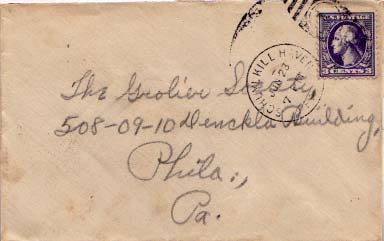 SCHUYLKILL HAVEN
23
U.S. POSTAGE
3 CENTS 3
The Grolier Society
508-09-10 Denckla Building,
Phila.,
Pa.